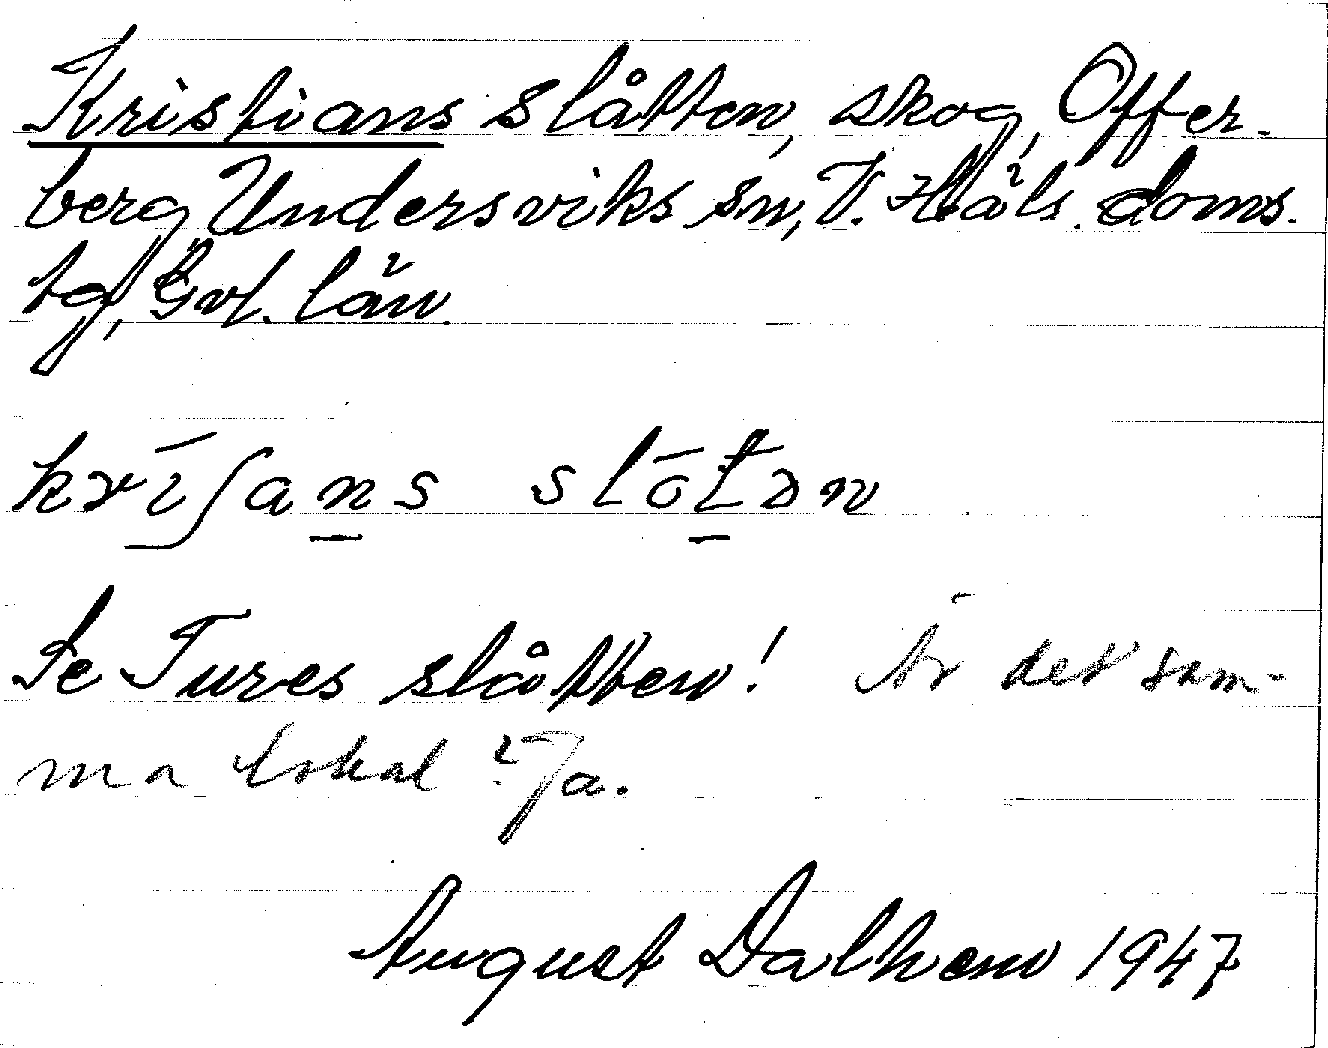 Kristians slåtten, skog, Offer-
berg, Undersviks sn, V. Häls. doms.
tg, Gvl. län.
krīʃans slōtən
Se Tures slåtten! Är det sam-
ma lokal? Ja.
August Dalhem 1947